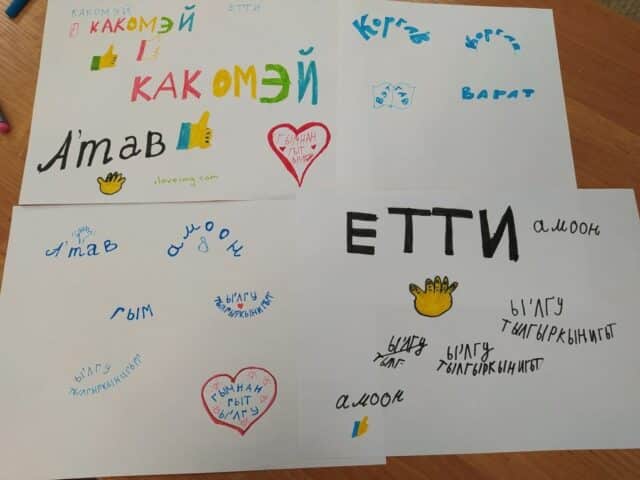 КАКОМЭЙ
ЕТТИ
КАКОМЭЙ
КАКОМЭЙ
А'тав
iloveimg.com
ГЫМНАН
ГЫТ
Коргль
Коргль
ВАРАТ
А'тав
амоон
гым
Ы'ЛГУ
ТЫЛГЫРКЫНИГЫТ
Ы'ЛГУ
ТЫЛГЫРКЫНИГЫТ
ГЫМНАН
ГЫТ
Ы'ЛГУ
ЕТТИ
амоон
Ы'ЛГУ
ТЫЛГЫРКЫНИГЫТ
Ы'ЛГУ
ТЫЛГ
Ы'ЛГУ
ТЫЛГЫРКЫНИГЫТ
амоон